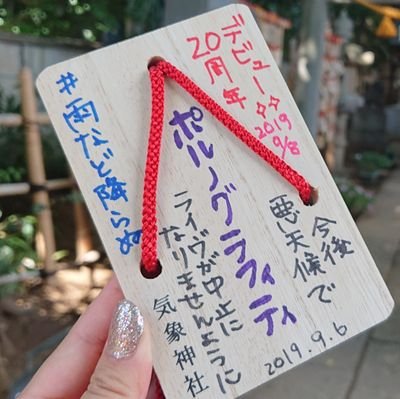 デビュー
20周年
✧✧
2019
9/8
今後
悪天候で
ポルノグラフィティ
ライヴが中止に
なりませんように
#雨など降らぬ
気象神社
2019.9.6